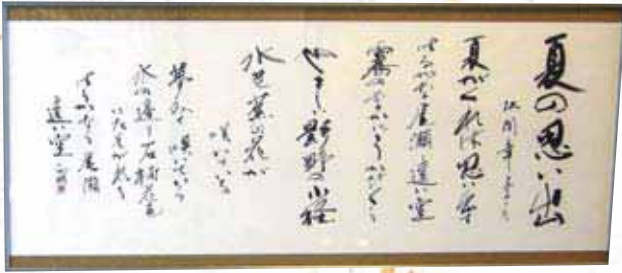 夏の思い出
江間章子
夏がくれば思い出
はるかな尾瀬遠い空
霧のなかにうかびくる
やさしい影野の小径
水芭蕉の花が
咲いている
夢みて咲いている
水の邊り石楠花色
にたそがれる
はるかな尾瀬
遠い空